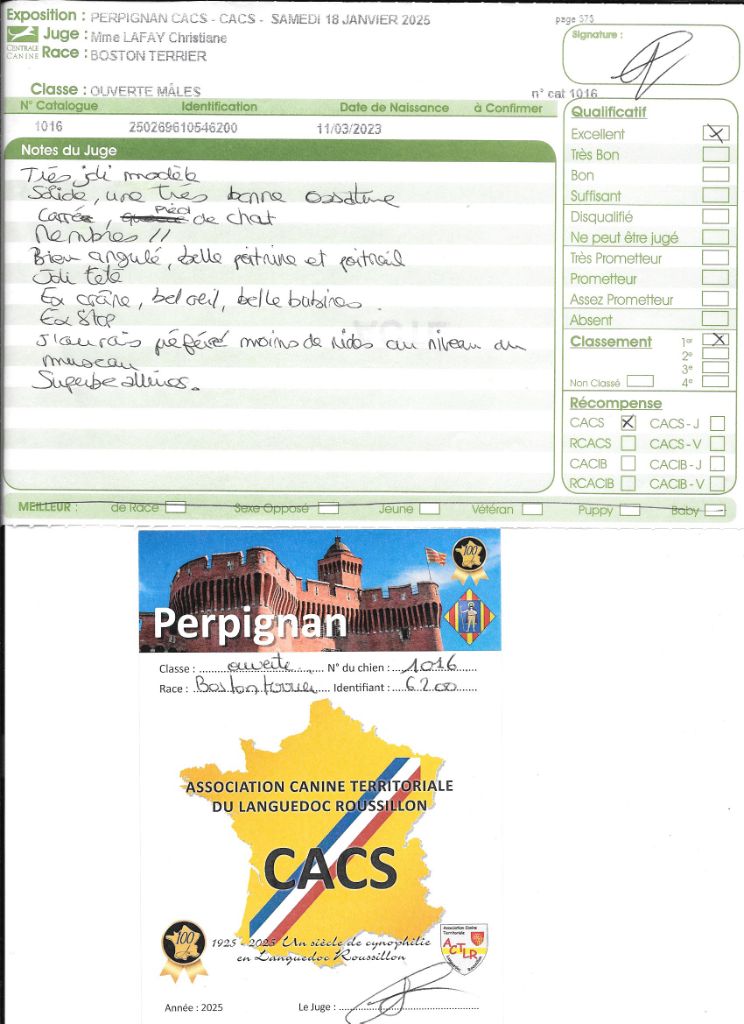 Exposition : PERPIGNAN CACS - CACS - SAMEDI 18 JANVIER 2025
page 373
Juge : Mme LAFAY Christiane
CENTRALE CANINE
Race : BOSTON TERRIER
Signature :
Classe : OUVERTE MÂLES
n° cat 1016
N° Catalogue Identification Date de Naissance à Confirmer
1016 250269610546200 11/03/2023
Notes du Juge
Très joli modèle
Solide, une très bonne ossature
Carré, Pied de chat
Membres //
Bien angulé, belle poitrine et poitrail
Joli tête
Ex crâne, bel oeil, belle babines
Ex Stop
J'aurais préféré moins de rides au niveau du
museau
Superbe allures.
Qualificatif
Excellent X
Très Bon
Bon
Suffisant
Disqualifié
Ne peut être jugé
Très Prometteur
Prometteur
Assez Prometteur
Absent
Classement 1er X
2e
3e
Non Classé 4e
Récompense
CACS X CACS - J
RCACS CACS - V
CACIB CACIB - J
RCACIB CACIB - V
MEILLEUR : de Race Sexe Opposé Jeune Vétéran Puppy Baby
100
Perpignan
Classe : ouverte N° du chien : 1016
Race : Boston terrier Identifiant : 6200
ASSOCIATION CANINE TERRITORIALE
DU LANGUEDOC ROUSSILLON
CACS
100
1925 - 2025 Un siècle de cynophilie
en Languedoc Roussillon
Association Canine Territoriale
ACTLR
Languedoc Roussillon
Année : 2025 Le Juge :